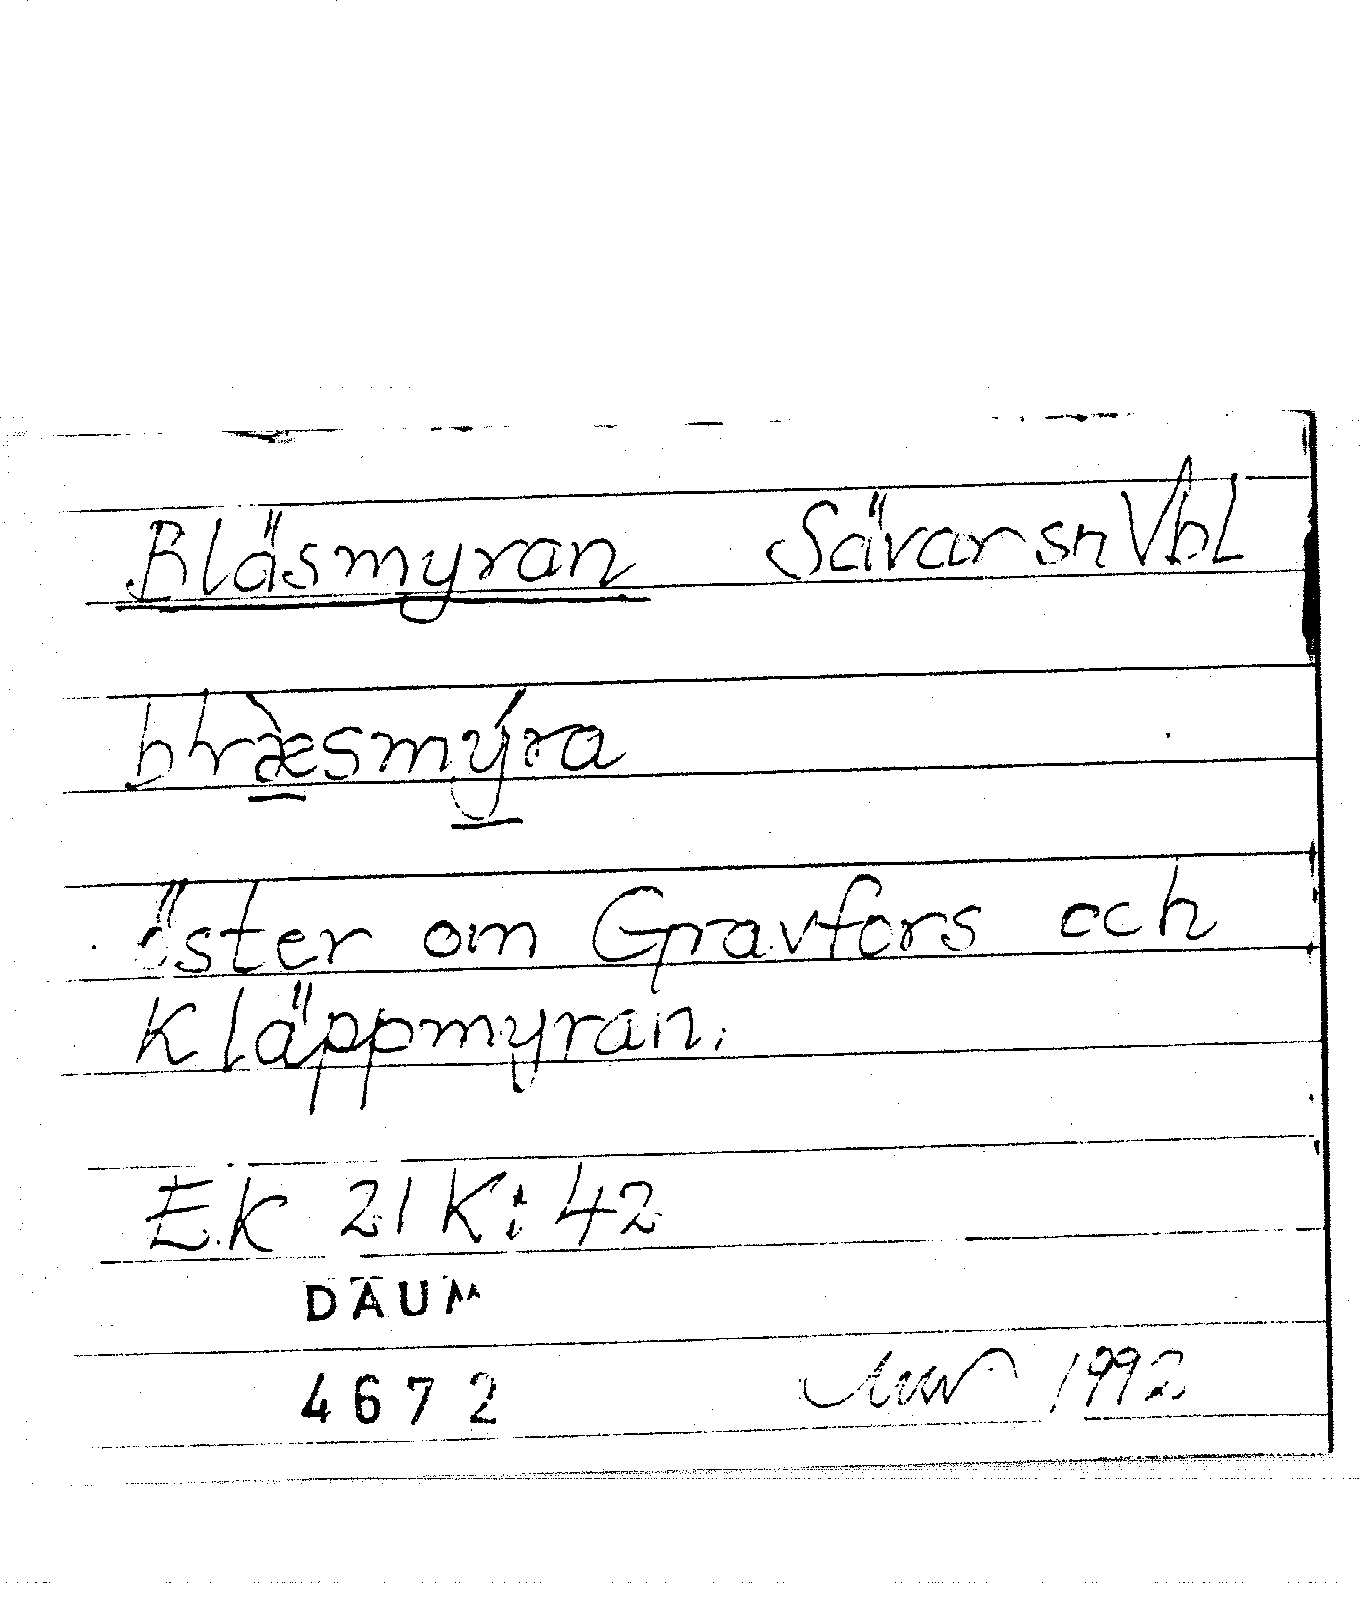 Bläsmyran Sävar sn Vbl
östер om Gravfors och
Kläppmyran.
E.K 21K:42
DAUM
4672 1992